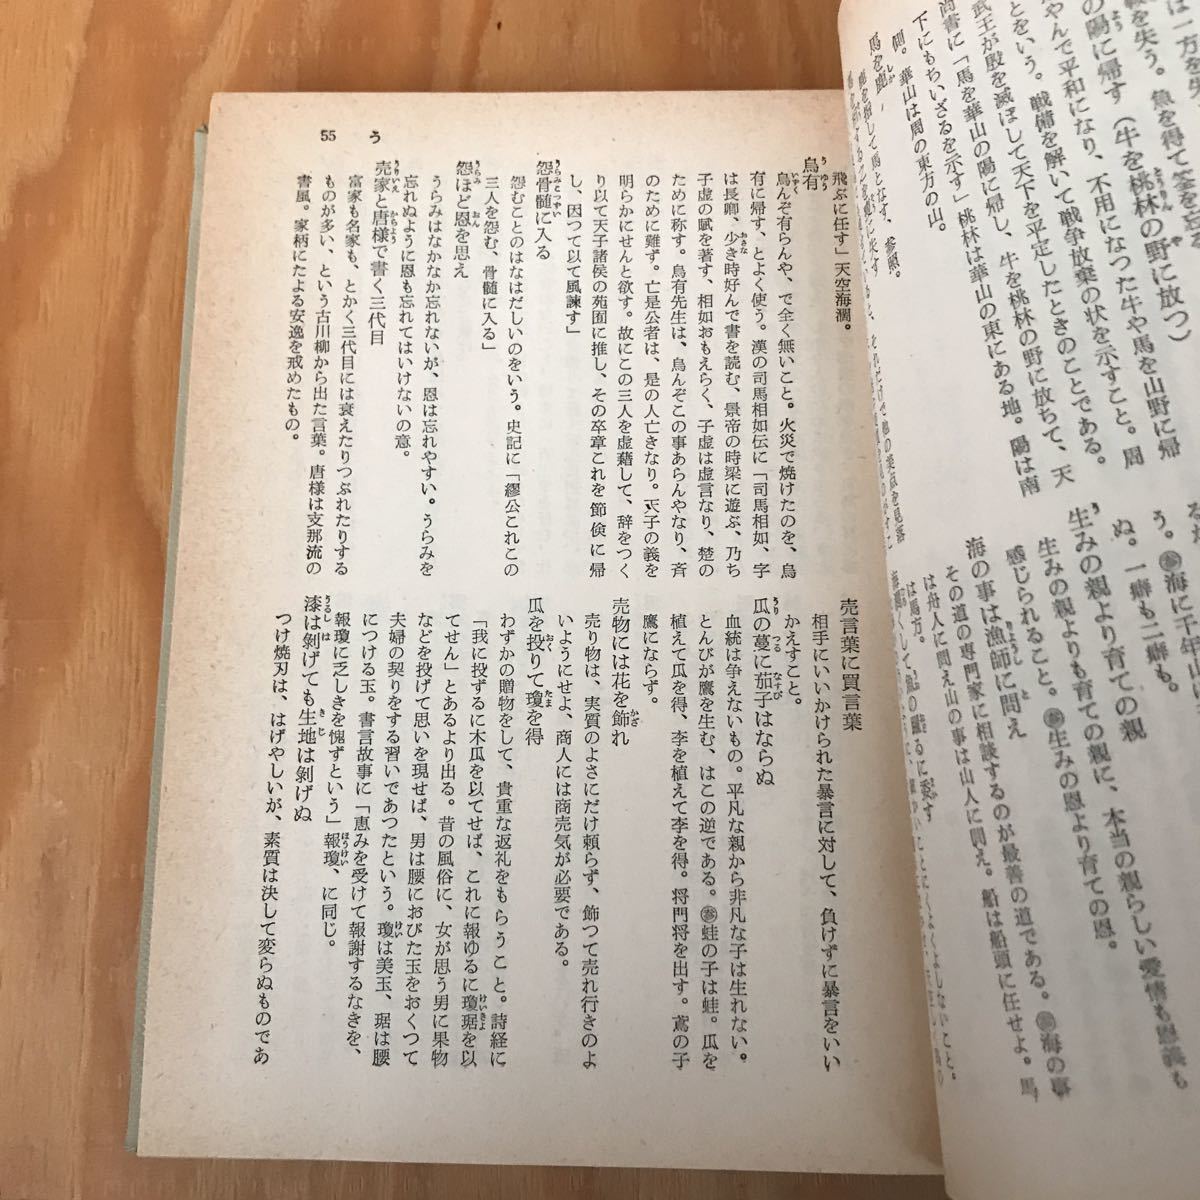 は一方を失
を失う。魚を得て筌を忘
の陽に帰す(牛を桃林の野に放つ)
やんで平和になり、不用になつた牛や馬を山野に帰
とをいう。戦備を解いて戦争放棄の状を示すこと。周
武王が殷を滅ぼして天下を平定したときのことである。
尚書に「馬を華山の陽に帰し、牛を桃林の野に放ちて、天
下にもちいざるを示す」桃林は華山の東にある地。陽は南
側。華山は周の東方の山。
馬を鹿
鹿を指して馬となす、参照。
海に千年山に
う。参海に千年山
ぬ。一癖も二癖も。
生みの親より育ての親
生みの親よりも育ての親に、本当の親らしい愛情も恩義も
感じられること。参生みの恩より育ての恩。
海の事は漁師に問え
その道の専門家に相談するのが最善の道である。参海の事
は舟人に問え山の事は山人に問え。船は船頭に任せよ。馬
は馬方。
55
う
飛ぶに任す」天空海濶。
烏有
烏んぞ有らんや、で全く無いこと。火災で焼けたのを、烏
有に帰す、とよく使う。漢の司馬相如伝に「司馬相如、字
は長卿、少き時好んで書を読む、景帝の時梁に遊ぶ、乃ち
子虚の賦を著す、相如おもえらく、子虚は虚言なり、楚の
ために称す。烏有先生は、烏んぞこの事あらんやなり、斉
のために難ず。亡是公者は、是の人亡きなり。天子の義を
明らかにせんと欲す。故にこの三人を虚藉して、辞をつく
り以て天子諸侯の苑囿に推し、その卒章これを節倹に帰
し、因つて以て風諫す」
怨骨髄に入る
怨むことのはなはだしいのをいう。史記に「繆公これこの
三人を怨む、骨髄に入る」
怨ほど恩を思え
うらみはなかなか忘れないが、恩は忘れやすい。うらみを
忘れぬように恩も忘れてはいけないの意。
売家と唐様で書く三代目
富家も名家も、とかく三代目には衰えたりつぶれたりする
ものが多い、という古川柳から出た言葉。唐様は支那流の
書風。家柄にたよる安逸を戒めたもの。
売言葉に買言葉
相手にいいかけられた暴言に対して、負けずに暴言をいい
かえすこと。
瓜の蔓に茄子はならぬ
血統は争えないもの。平凡な親から非凡な子は生れない。
とんびが鷹を生む、はこの逆である。参蛙の子は蛙。瓜を
植えて瓜を得、李を植えて李を得。将門将を出す。鳶の子
鷹にならず。
売物には花を飾れ
売り物は、実質のよさにだけ頼らず、飾つて売れ行きのよ
いようにせよ、商人には商売気が必要である。
瓜を投りて瓊を得
わずかの贈物をして、貴重な返礼をもらうこと。詩経に
「我に投ずるに木瓜を以てせば、これに報ゆるに瓊琚を以
てせん」とあるより出る。昔の風俗に、女が思う男に果物
などを投げて思いを現せば、男は腰におびた玉をおくつて
夫婦の契りをする習いであつたという。瓊は美玉、琚は腰
につける玉。書言故事に「恵みを受けて報謝するなきを、
報瓊に乏しきを愧ずという」報瓊、に同じ。
漆は剝げても生地は剝げぬ
つけ焼刃は、はげやしいが、素質は決して変らぬものであ